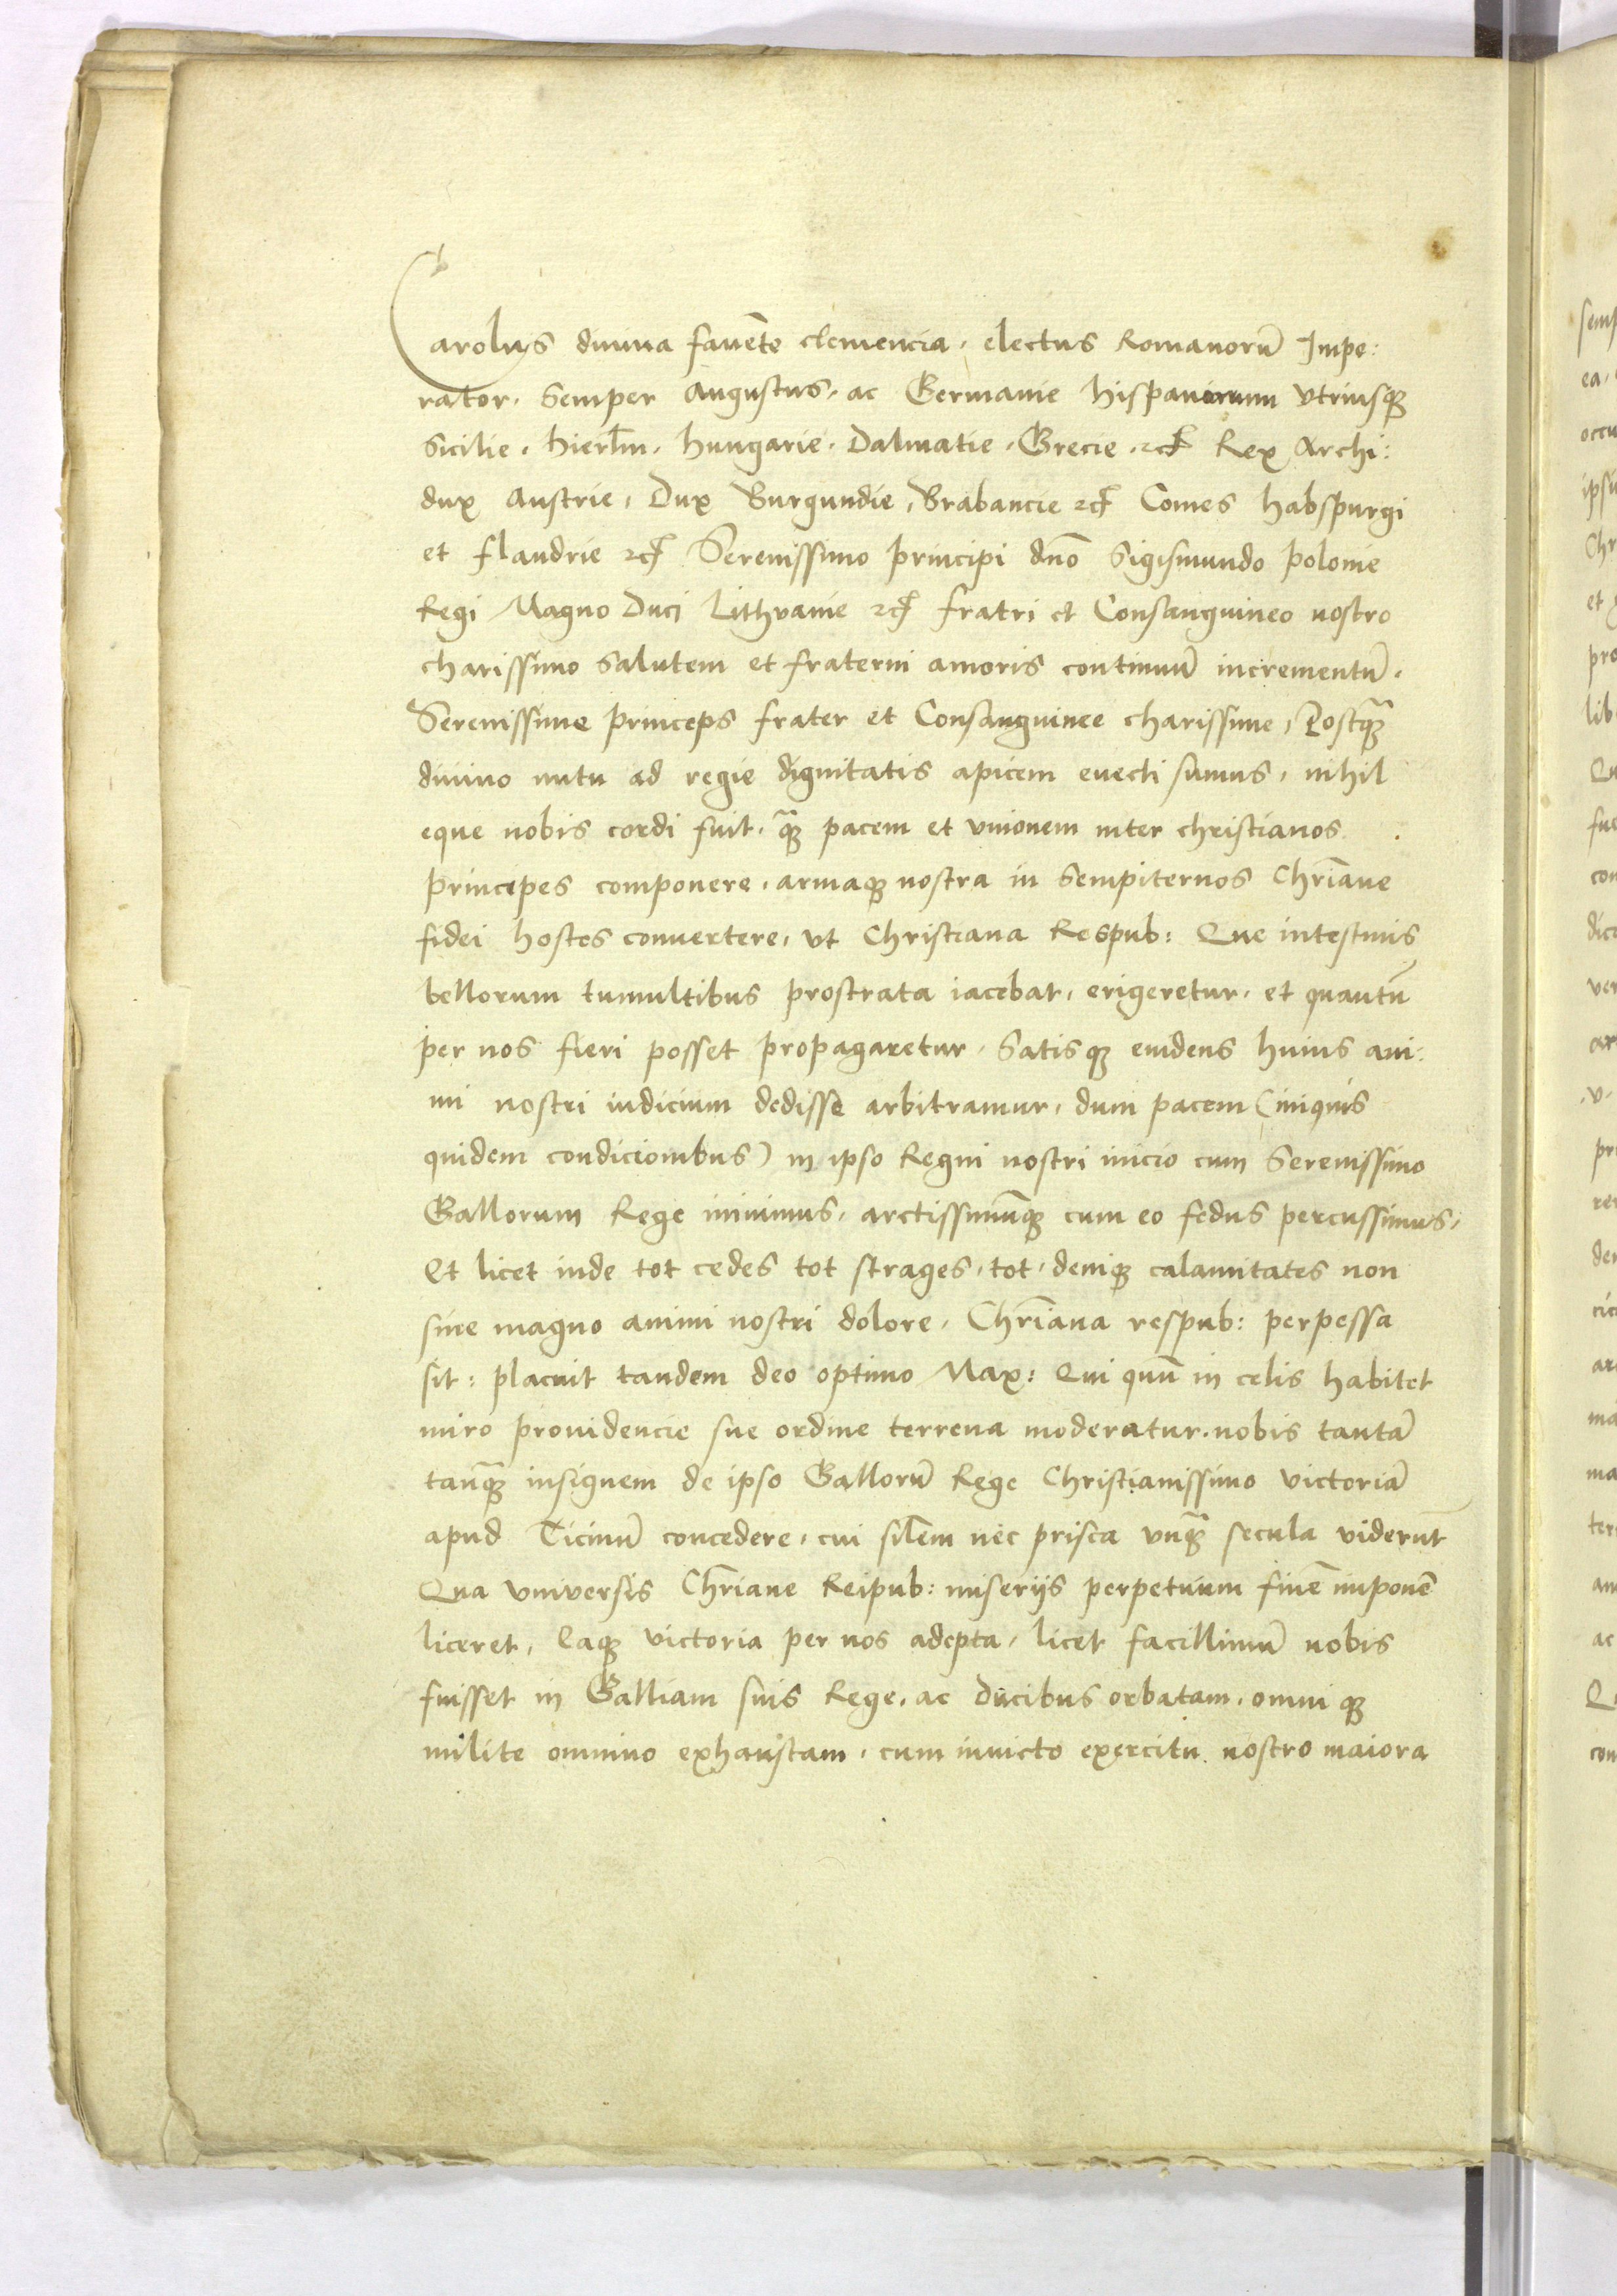 Carolus diuina fauēte clemencia, electus Romanorū Impe:
rator, Semper Augustus, ac Germanie hispaniarum vtriusqꝫ
Sicilie, hierl̄m, hungarie, Dalmatie, Grecie, ⁊cꝭ Rex Archi:
dux Austrie, Dux Burgundie, Brabancie ⁊cꝭ Comes habspurgi
et flandrie ⁊cꝭ Serenissimo principi dn̄o Sigismundo polonie
Regi Magno Duci Lithvanie ⁊cꝭ fratri et Consanguineo nostro
charissimo Salutem et fraterni amoris continuū incrementū.
Serenissime princeps frater et Consanguinee charissime, Postqꝫ̄
diuino nutu ad regie dignitatis apicem euecti sumus, nihil
eque nobis cordi fuit, qꝫ̄ pacem et vnionem inter christianos
principes componere, armaqꝫ nostra in Sempiternos Chr̄iane
fidei hostes conuertere, vt Christiana Respub: Que intestinis
bellorum tumultibus prostrata iacebat, erigeretur, et quantū
per nos fieri posset propagaretur, Satisqꝫ euidens huius ani:
mi nostri indicium dedisse arbitramur, dum pacem (iniquis
quidem condicionibus) in ipso Regni nostri inicio cum Serenissimo
Gallorum Rege iniuimus, arctissimūqꝫ cum eo fedus percussimus,
Et licet inde tot cedes tot strages, tot, deniqꝫ calamitates non
sine magno animi nostri dolore, Chr̄iana respub: perpessa
sit: placuit tandem deo optimo Max: Qui quū in celis habitet
miro prouidencie sue ordine terrena moderatur, nobis tantā
tanqꝫ̄ insignem de ipso Gallorū Rege Christianissimo victoriā
apud Ticinū concedere, cui sil̄em nec prisca vnqꝫ̄ secula viderūt
Qua vniversis Chr̄iane Reipub: miserijs perpetuum finē imponē
liceret, Eaqꝫ victoria per nos adepta, licet facillimū nobis
fuisset in Galliam suis Rege, ac ducibus orbatam, omni qꝫ
milite omnino exhaustam, cum inuicto exercitu nostro maiora